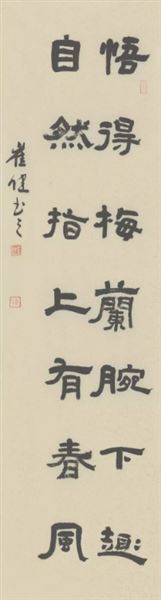 悟得梅蘭腕下趣
自然指上有春風
崔健书之